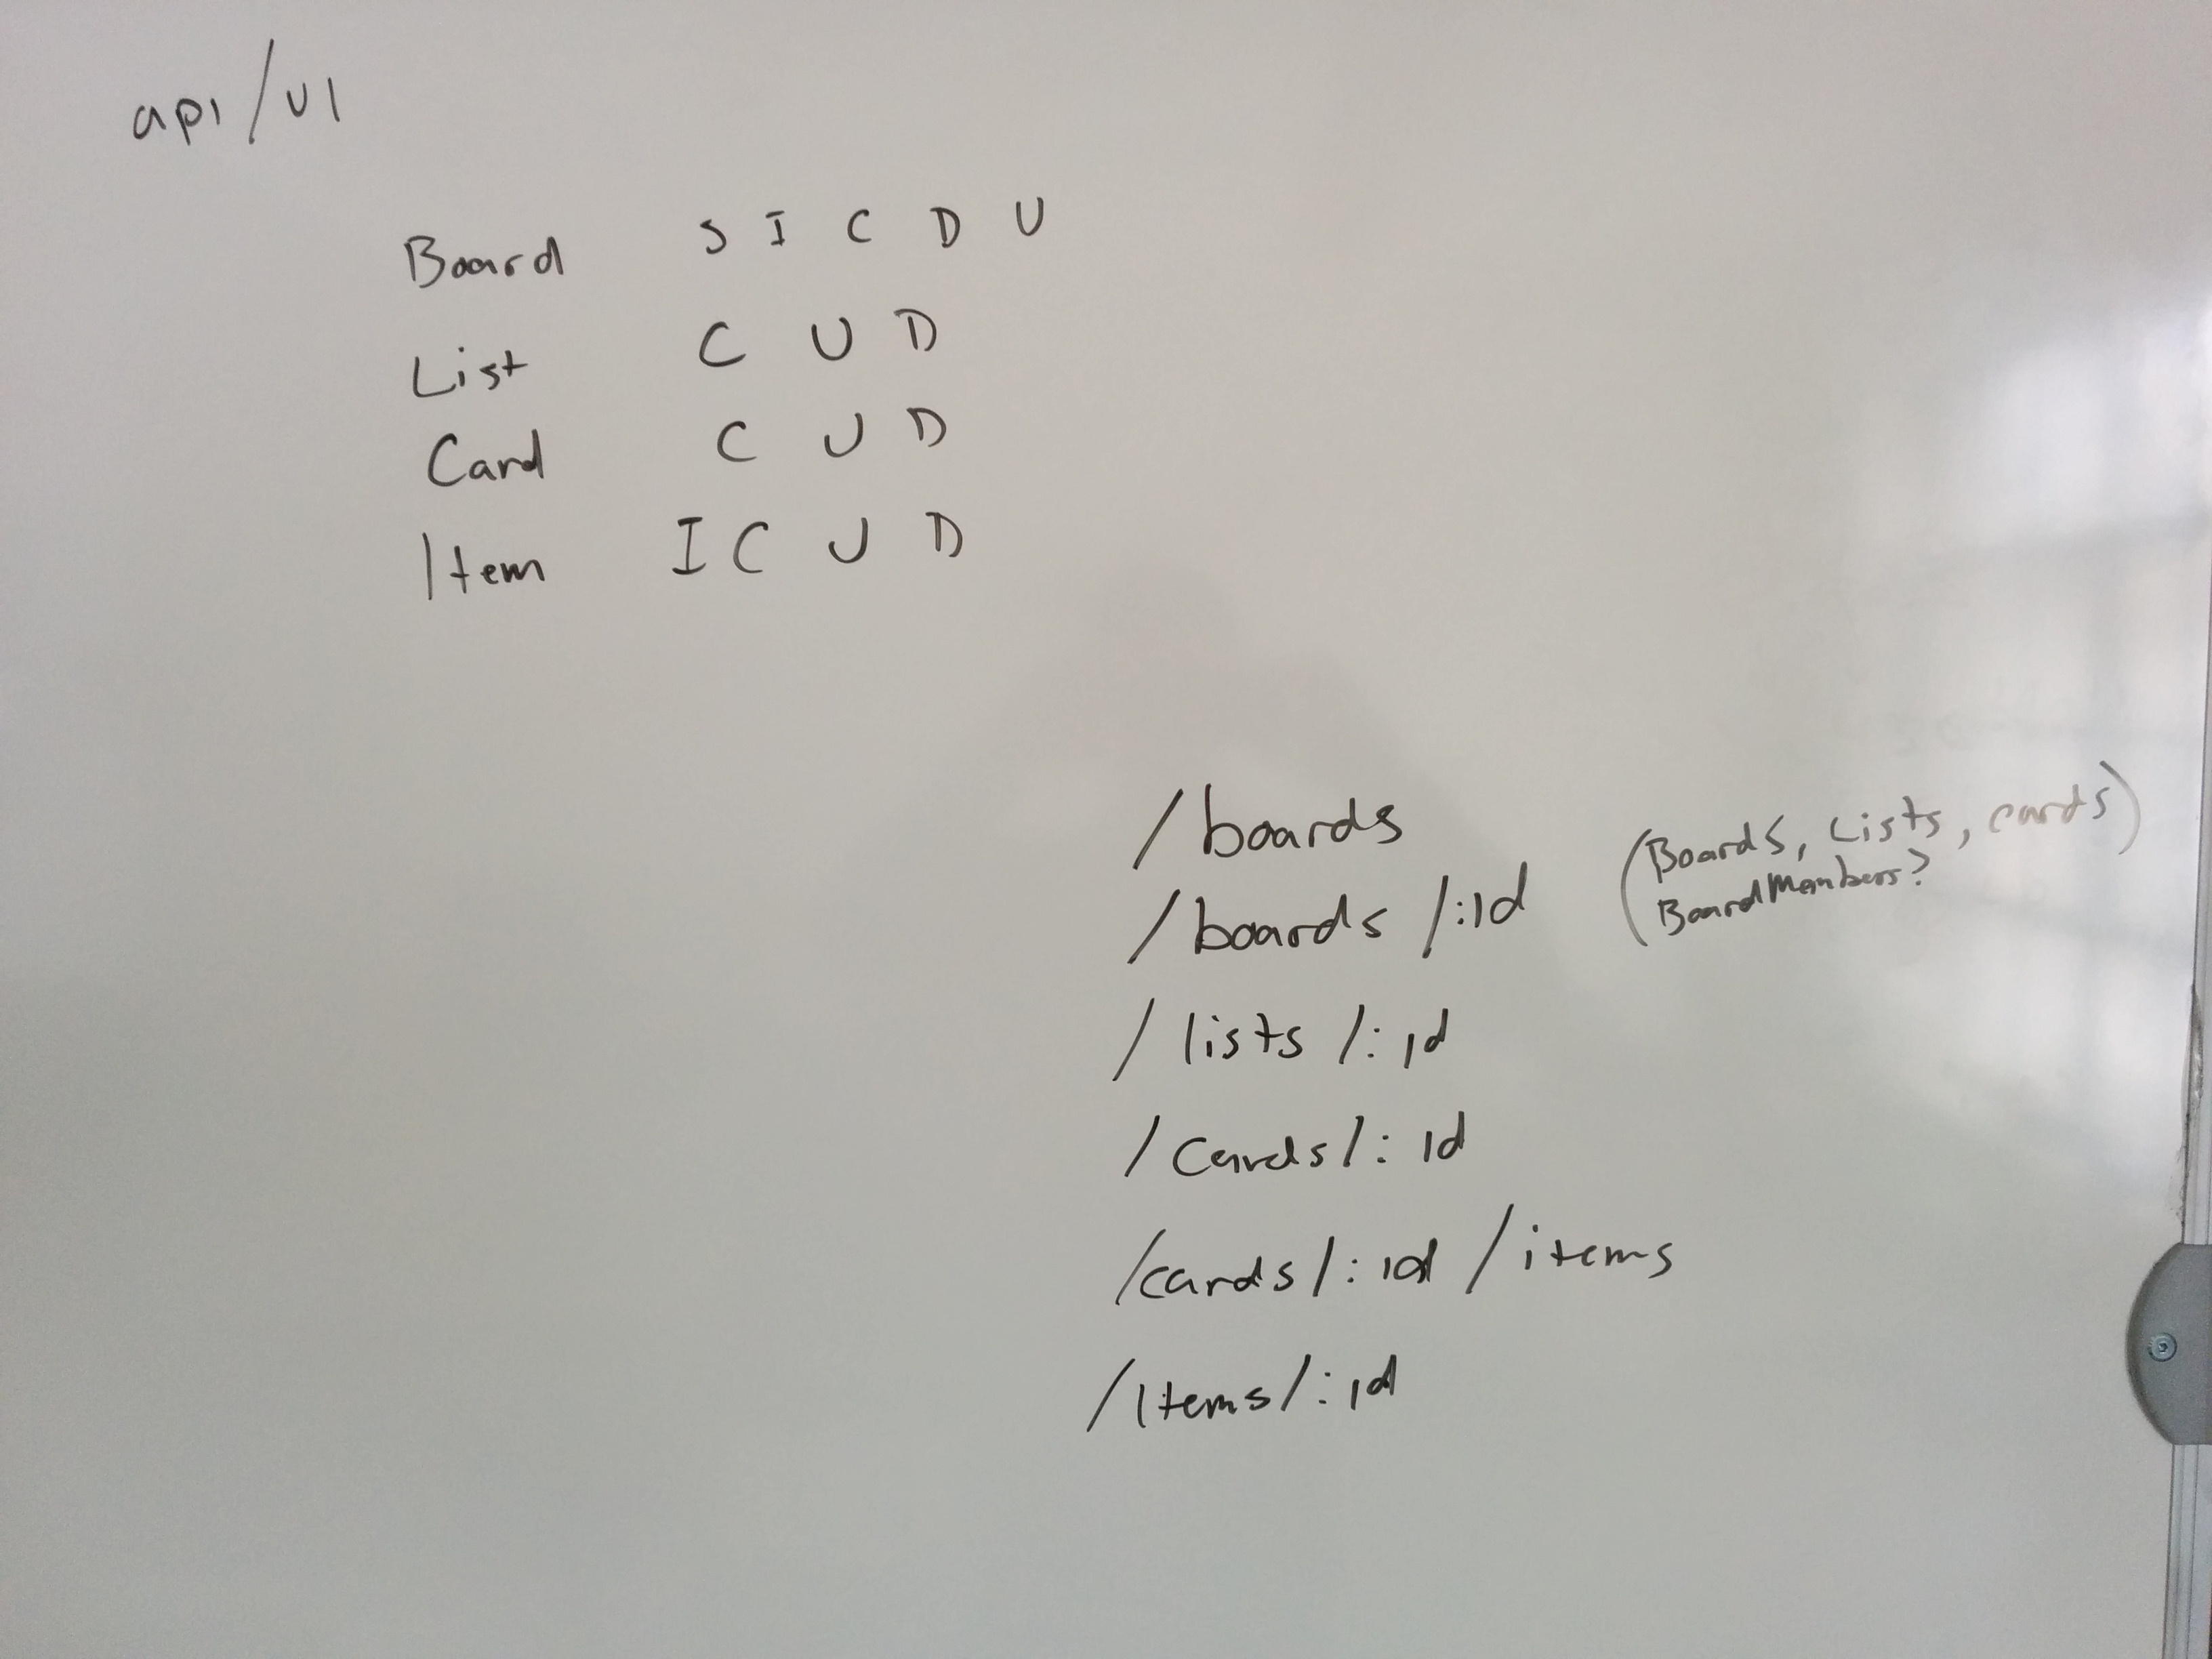 api/v1
Board S I C D U
List C U D
Card C U D
Item I C U D
/boards
/boards/:id (Boards, Lists, cards)
BoardMembers?
/lists/:id
/cards/:id
/cards/:id/items
/items/:id